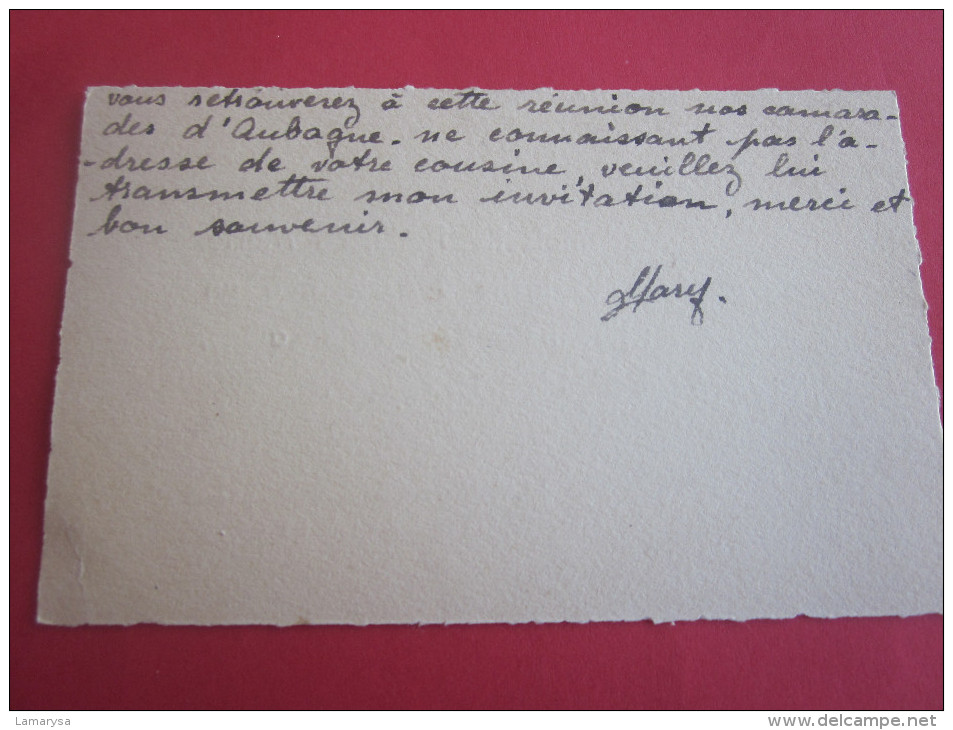 vous retrouverez à cette réunion nos camara-
des d'Aubagne. ne connaissant pas l'a-
-dresse de votre cousine, veuillez lui
transmettre mon invitation, merci et
bon souvenir.
Mary.
Lamarysa
www.delcampe.net